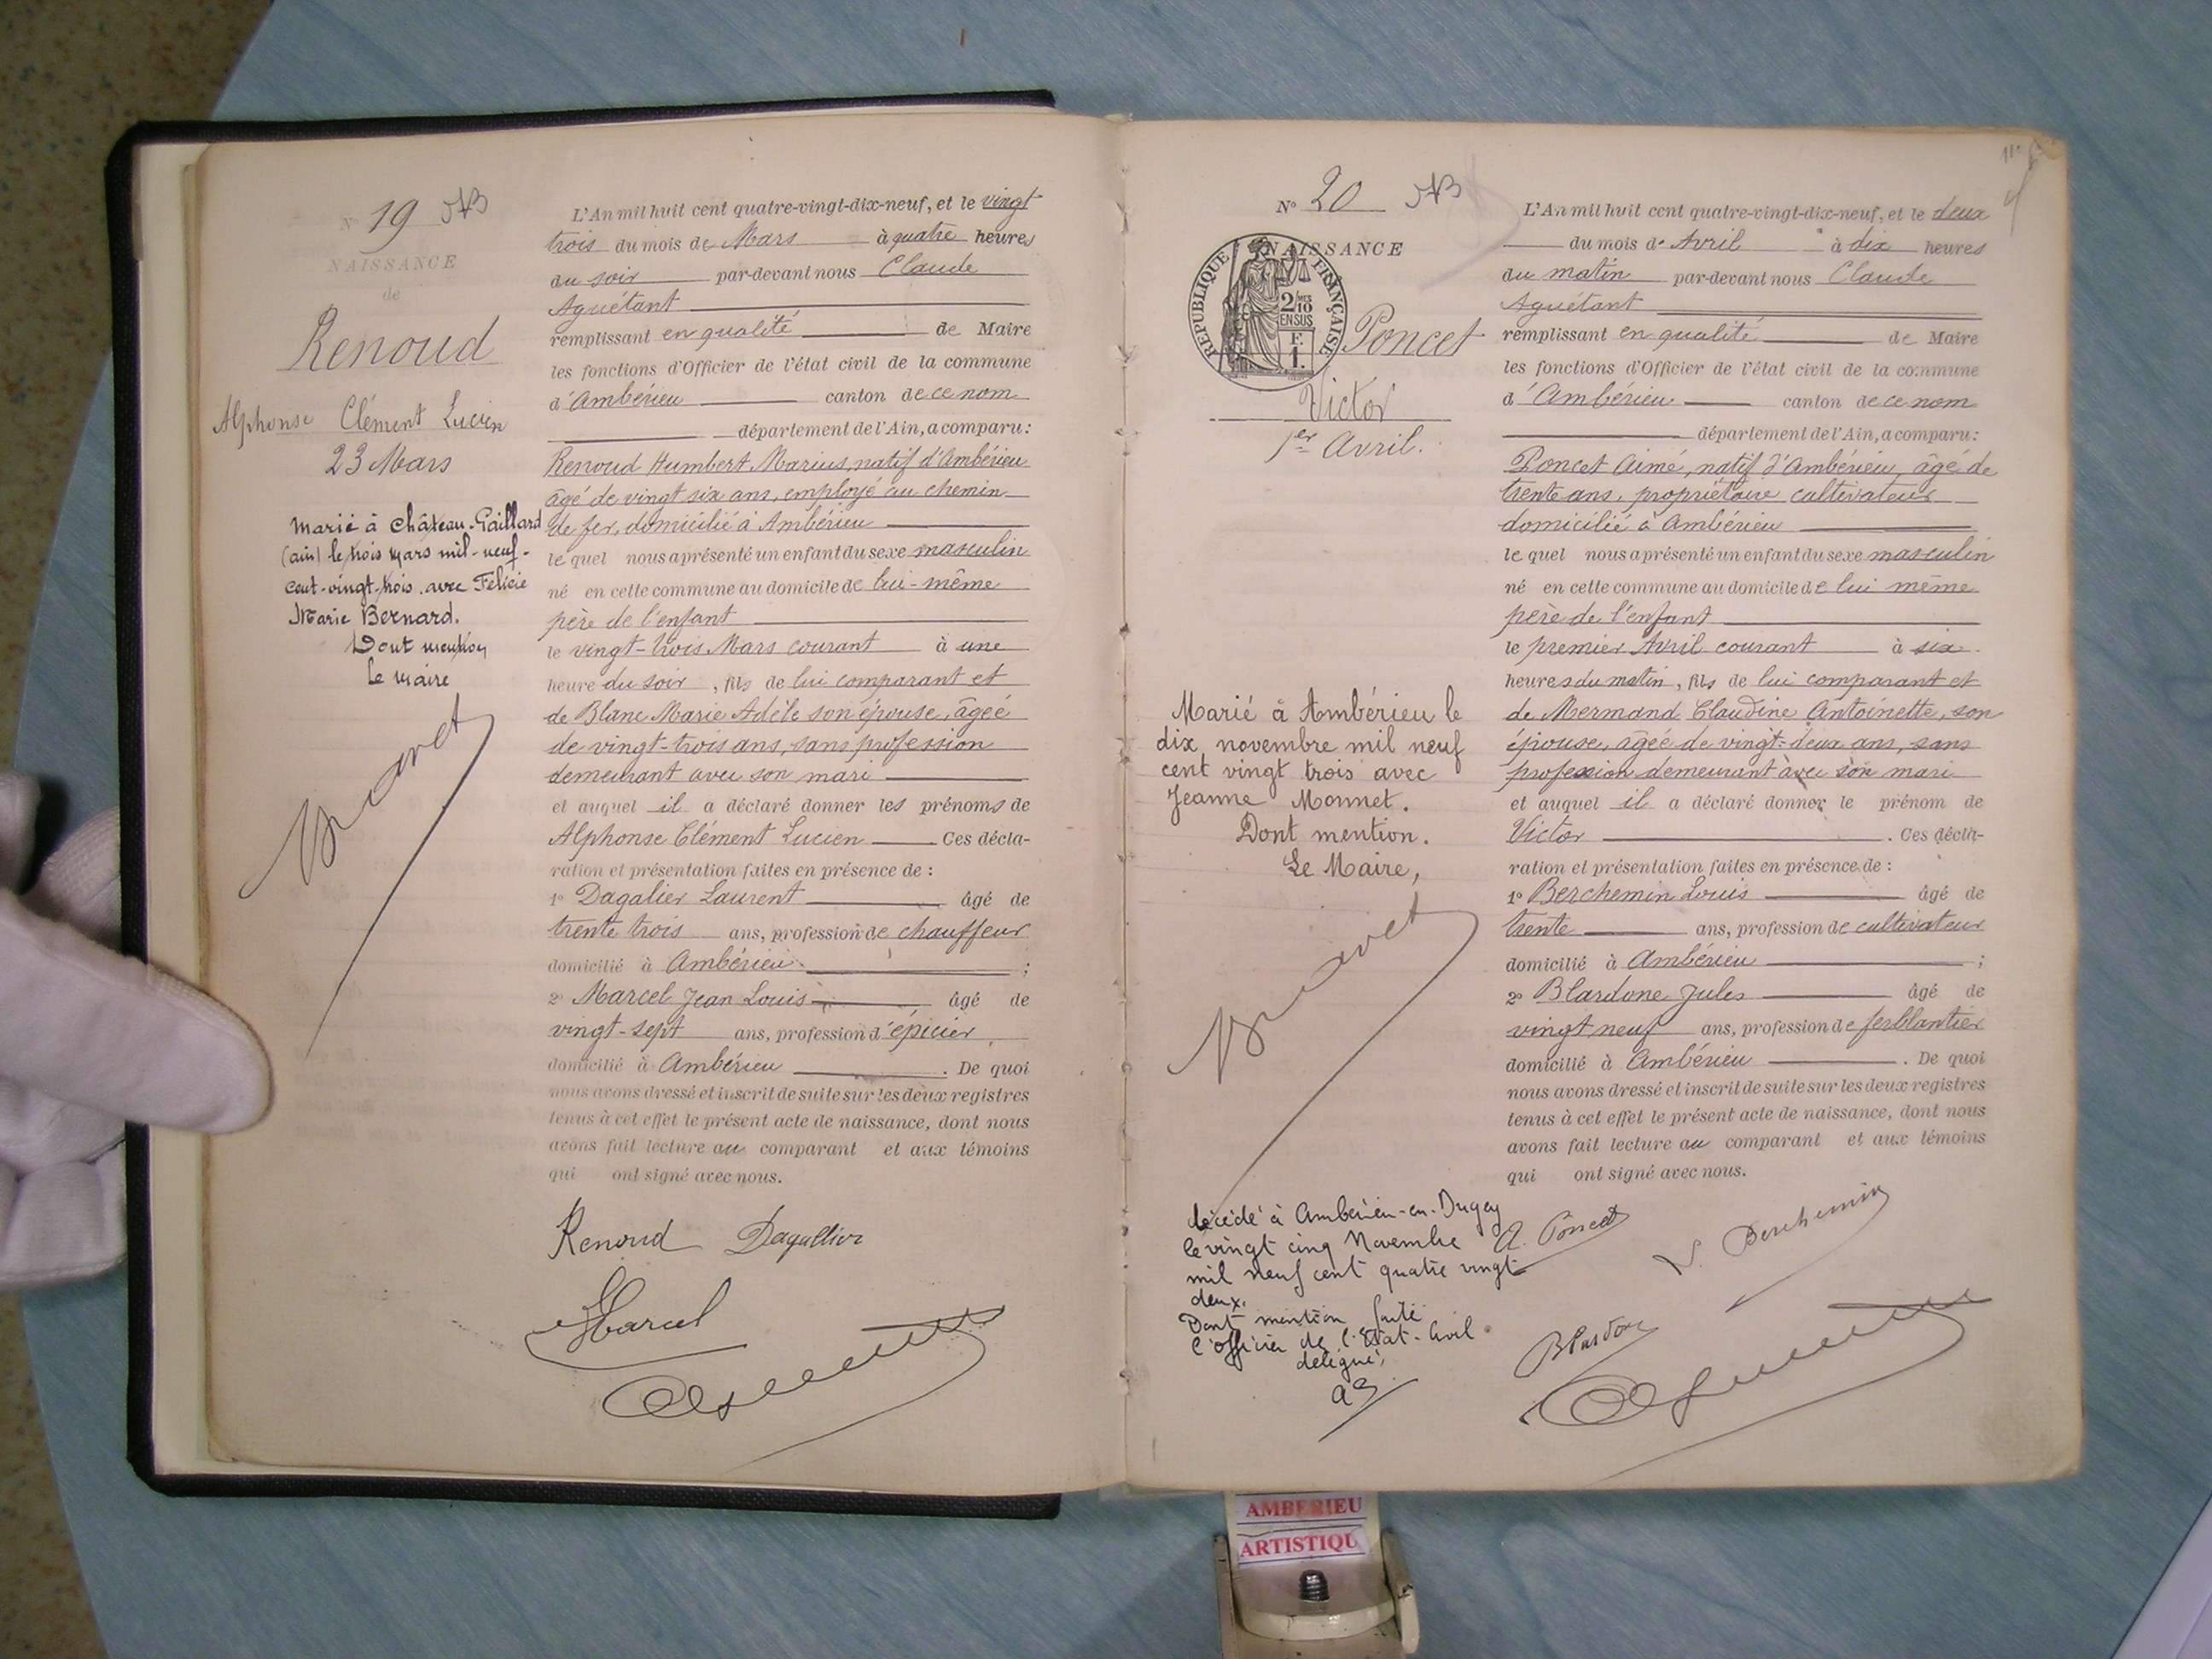 N° 19
NAISSANCE
de
Renoud
Alphonse Clément Lucien
23 Mars
Marié à Château-Gaillard
(ain) le trois Mars mil-neuf-
cent-vingt-trois avec Félicie
Marie Bernard.
Dont mention
Le Maire
L'An mil huit cent quatre-vingt-dix-neuf, et le vingt
trois du mois de Mars à quatre heures
du soir par-devant nous Claude
Aguétant
remplissant en qualité de Maire
les fonctions d'Officier de l'état civil de la commune
d'Ambérieu canton de ce nom
département de l'Ain, a comparu:
Renoud Humbert Marius, natif d'Ambérieu
âgé de vingt six ans, employé au chemin
de fer, domicilié à Ambérieu
le quel nous a présenté un enfant du sexe masculin
né en cette commune au domicile de lui-même
père de l'enfant
le vingt-trois Mars courant à une
heure du soir, fils de lui comparant et
de Blanc Marie Adèle son épouse, âgée
de vingt-trois ans, sans profession
demeurant avec son mari
et auquel il a déclaré donner les prénoms de
Alphonse Clément Lucien Ces décla-
ration et présentation faites en présence de :
1° Dagalier Laurent âgé de
trente trois ans, profession de chauffeur
domicilié à Ambérieu ;
2° Marcel Jean Louis âgé de
vingt-sept ans, profession d'épicier
domicilié à Ambérieu . De quoi
nous avons dressé et inscrit de suite sur les deux registres
tenus à cet effet le présent acte de naissance, dont nous
avons fait lecture au comparant et aux témoins
qui ont signé avec nous.
Renoud Dagallier
Marcel
N° 20
NAISSANCE
REPUBLIQUE FRANÇAISE
2/10
EN SUS
F.
1.
Poncet
Victor
1er Avril.
Marié à Ambérieu le
dix novembre mil neuf
cent vingt trois avec
Jeanne Monnet.
Dont mention.
Le Maire,
décédé à Ambérieu-en-Bugey
le vingt cinq Novembre
mil neuf cent quatre vingt
deux.
Dont mention faite
l'officier de l'Etat-Civil
délégué,
L'An mil huit cent quatre-vingt-dix-neuf, et le deux
du mois d'Avril à dix heures
du matin par-devant nous Claude
Aguétant
remplissant en qualité de Maire
les fonctions d'Officier de l'état civil de la commune
d'Ambérieu canton de ce nom
département de l'Ain, a comparu:
Poncet Aimé, natif d'Ambérieu, âgé de
trente ans, propriétaire cultivateur
domicilié à Ambérieu
le quel nous a présenté un enfant du sexe masculin
né en cette commune au domicile de lui même
père de l'enfant
le premier Avril courant à six
heures du matin, fils de lui comparant et
de Mermand Claudine Antoinette, son
épouse, âgée de vingt-deux ans, sans
profession demeurant avec son mari
et auquel il a déclaré donner le prénom de
Victor . Ces décla-
ration et présentation faites en présence de :
1° Berchemin Louis âgé de
trente ans, profession de cultivateur
domicilié à Ambérieu ;
2° Blardone Jules âgé de
vingt neuf ans, profession de ferblantier
domicilié à Ambérieu . De quoi
nous avons dressé et inscrit de suite sur les deux registres
tenus à cet effet le présent acte de naissance, dont nous
avons fait lecture au comparant et aux témoins
qui ont signé avec nous.
A. Poncet L. Berchemin
Blardone
AMBERIEU
ARTISTIQU